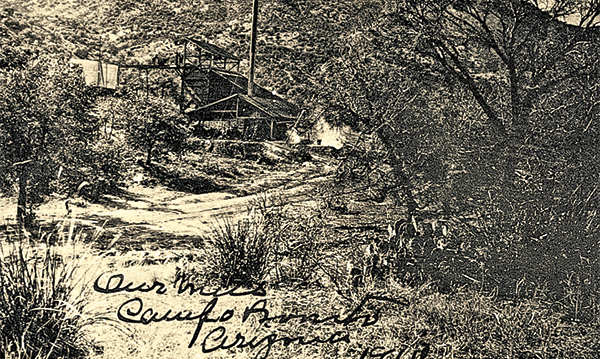 Our Mill
Campo Bonito
Arizona